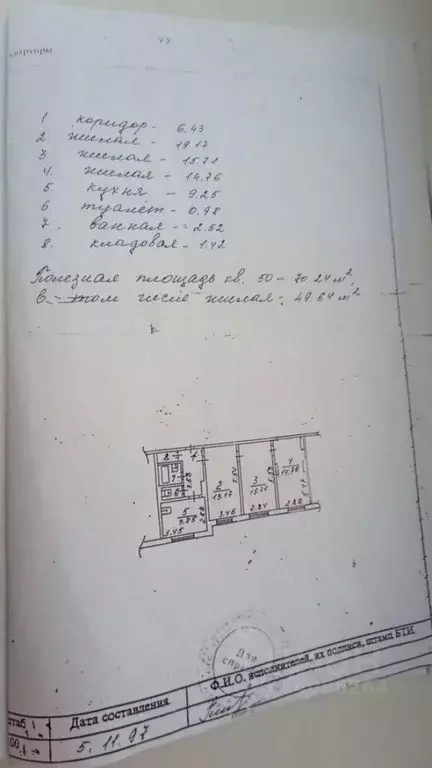 квартиры
1 коридор - 6.43
2. жилая - 19.17
3 жилая - 15.71
4. жилая - 14.76
5 кухня - 9.25
6 туалет - 0.98
7. ванная - 2.52
8. кладовая - 1.42
Полезная площадь кв. 50 - 70.24 м²,
в том числе жилая: 49.64 м²
8
1
7
6
2.58
2
19.17
5.54
3
15.71
5.53
4
14.76
5.47
5
9.25
2.68
3.45
3.46
2.84
2.82
Для
Ф.И.О. исполнителей, их подписи, штамп БТИ
Дата составления
5.11.97